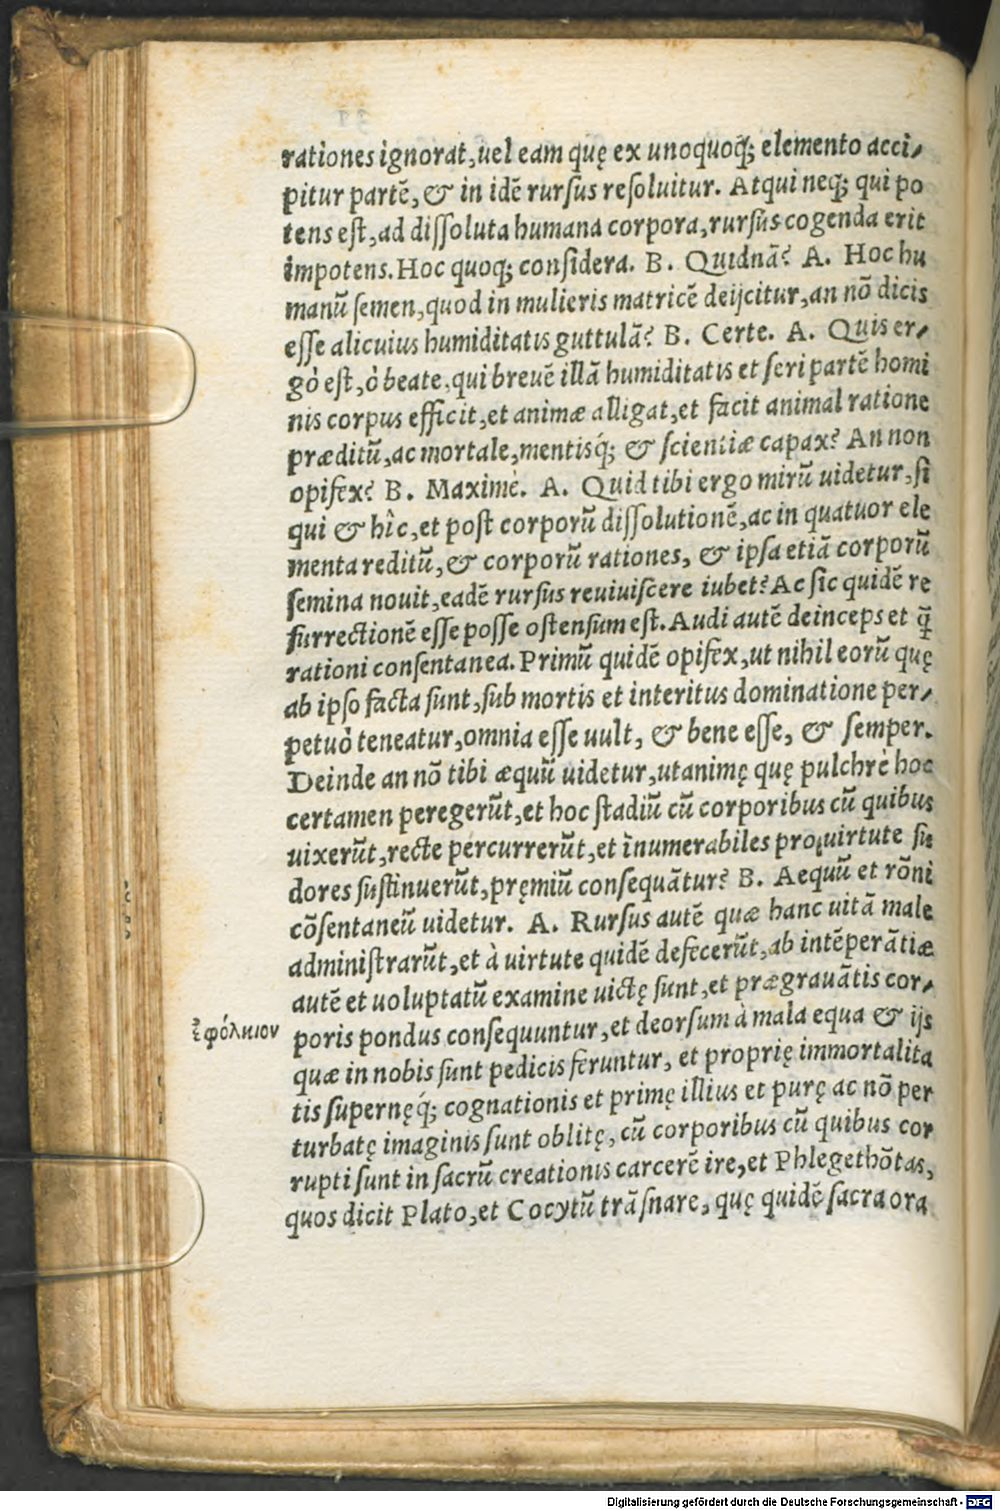 rationes ignorat, uel eam quę ex unoquoq; elemento acci-
pitur partē, & in idē rursus resoluitur. Atqui neq; qui po
tens est, ad dissoluta humana corpora, rursus cogenda erit
impotens. Hoc quoq; considera. B. Quidnā? A. Hoc hu
manū semen, quod in mulieris matricē deijcitur, an nō dicis
esse alicuius humiditatis guttulā? B. Certe. A. Quis er-
gò est, ò beate, qui breuē illā humiditatis et seri partē homi
nis corpus efficit, et animæ alligat, et facit animal ratione
præditū, ac mortale, mentisq́; & scientiæ capax? An non
opifex? B. Maximè. A. Quid tibi ergo mirū uidetur, si
qui & hîc, et post corporū dissolutionē, ac in quatuor ele
menta reditū, & corporū rationes, & ipsa etiā corporū
semina nouit, eadē rursus reuiuiscere iubet? Ac sic quidē re
surrectionē esse posse ostensum est. Audi autē deinceps et q̄
rationi consentanea. Primū quidē opifex, ut nihil eorū quę
ab ipso facta sunt, sub mortis et interitus dominatione per-
petuò teneatur, omnia esse uult, & bene esse, & semper.
Deinde an nō tibi æquū uidetur, ut animę quę pulchrè hoc
certamen peregerūt, et hoc stadiū cū corporibus cū quibus
uixerūt, recte percurrerūt, et īnumerabiles pro uirtute su
dores sustinuerūt, pręmiū consequātur? B. Aequū et rōni
cōsentaneū uidetur. A. Rursus autē quæ hanc uitā male
administrarūt, et à uirtute quidē defecerūt, ab intēperātiæ
autē et uoluptatū examine uictę sunt, et prægrauātis cor-
ἐφόλκιον
poris pondus consequuntur, et deorsum à mala equa & ijs
quæ in nobis sunt pedicis feruntur, et proprię immortalita
tis supernęq́; cognationis et primę illius et purę ac nō per
turbatę imaginis sunt oblitę, cū corporibus cū quibus cor
rupti sunt in sacrū creationis carcerē ire, et Phlegethōtas,
quos dicit Plato, et Cocytū trāsnare, quę quidē sacra ora
Digitalisierung gefördert durch die Deutsche Forschungsgemeinschaft - DFG